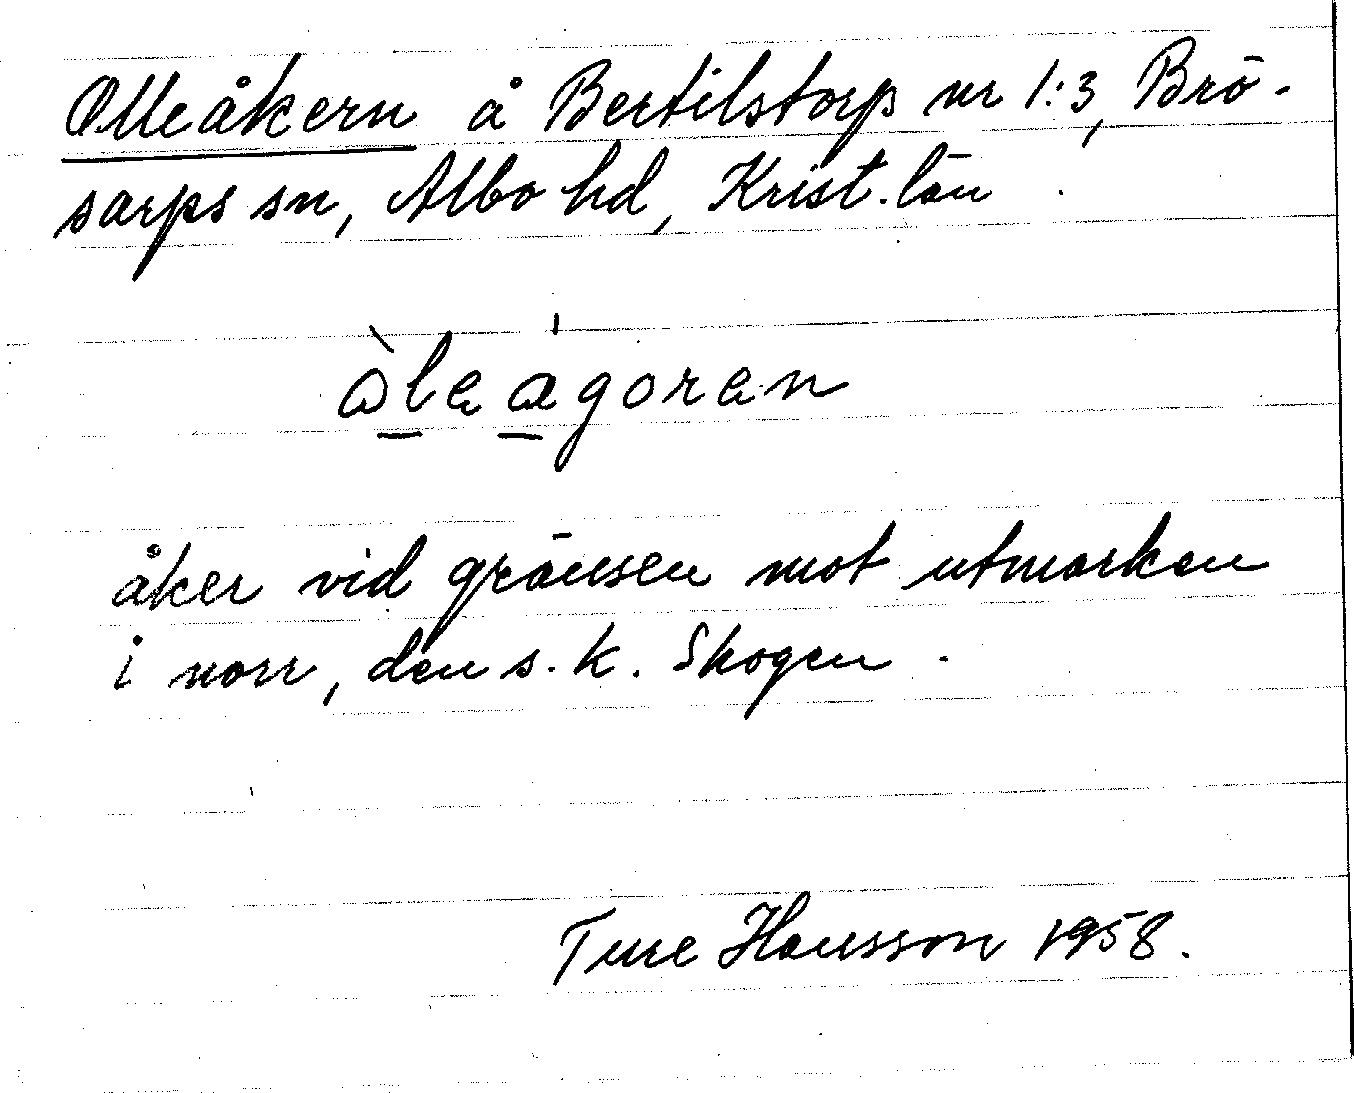 Olleåkern å Bertilstorp nr 1:3, Brö-
sarps sn, Albo hd, Krist. län.
åker vid gränsen mot utmarken
i norr, den s.k. Skogen.
Ture Hansson 1958.